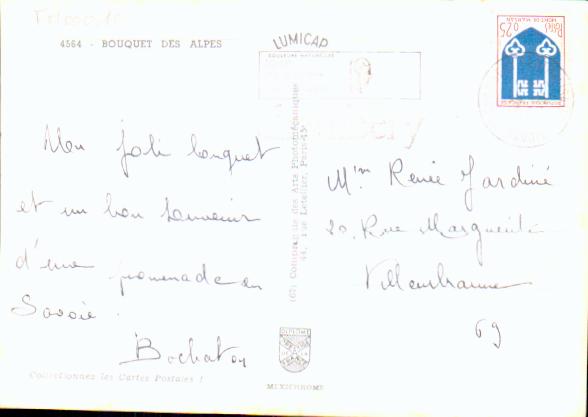 4564 - BOUQUET DES ALPES
LUMICAP
COULEURS NATURELLES
Mon joli bouquet
et un bon souvenir
d'une promenade en
Savoie.
Bochaton
Collectionnez les Cartes Postales !
(C) Compagnie des Arts Photomécaniques
44, rue Letellier, Paris-15e
DIPLOME
MEXICHROME
0,25
MONT-DE-MARSAN
REPUBLIQUE FRANÇAISE
Mme Renée Jardiné
20, Rue Marguerite
Villeurbanne
69